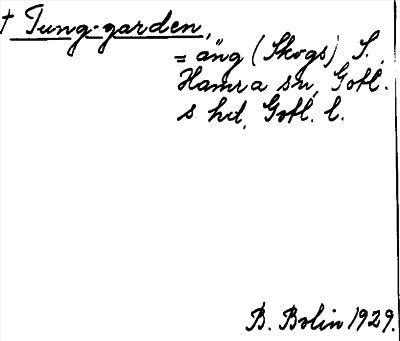 † Tung-garden,
= äng (Skogs) S.,
Hamra sn, Gotl.
s hd, Gotl. l.
B. Bolin 1929.